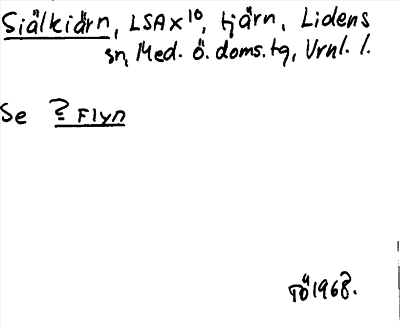 Siälkiärn, LSA X 10, tjärn, Lidens
sn, Med. ö. doms. tg, Vrnl. l.
Se ? Flyn
TÖ 1968.